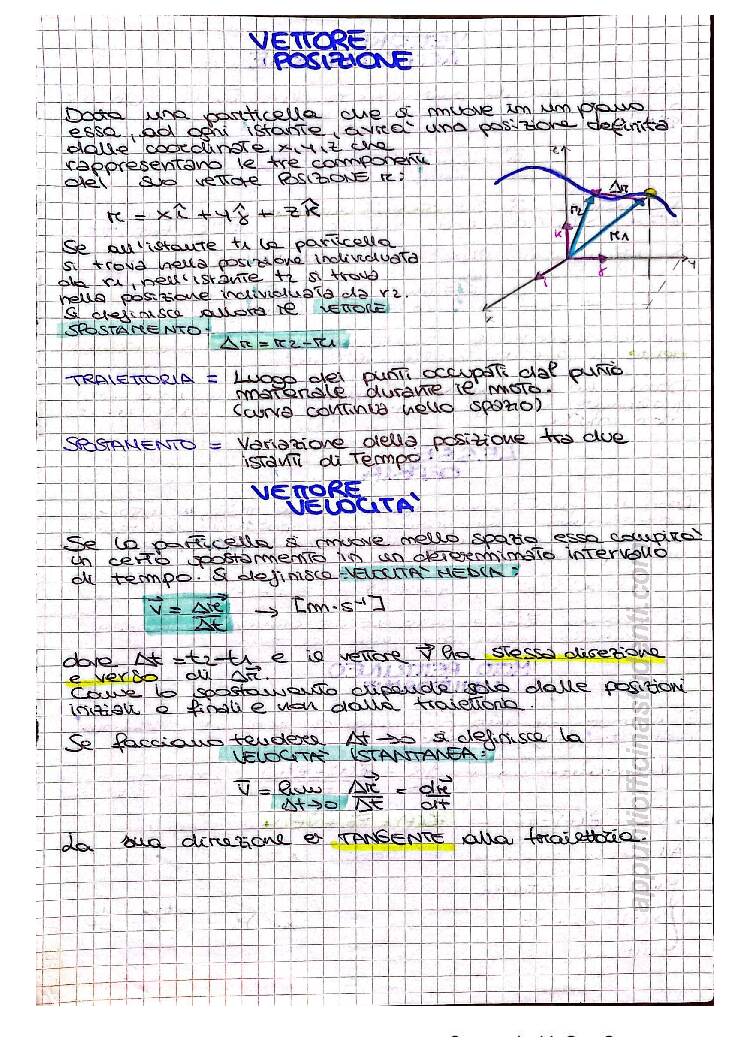 VETTORE
POSIZIONE
Data una particella che si muove in un piano
essa, ad ogni istante, avrà una posizione definita
dalle coordinate x, y, z che
rappresentano le tre componenti
del suo vettore POSIZIONE r:
r = xî + yĵ + zk̂
Se all'istante t1 la particella
si trova nella posizione individuata
da r1, nell'istante t2 si trova
nella posizione individuata da r2.
Si definisce allora il VETTORE
SPOSTAMENTO:
Δr = r2 - r1
z
Δr
r2
r1
k
j
i
y
x
TRAIETTORIA = Luogo dei punti occupati dal punto
materiale durante il moto.
(curva continua nello spazio)
SPOSTAMENTO = Variazione della posizione tra due
istanti di tempo
VETTORE
VELOCITA'
Se la particella si muove nello spazio essa compirà
un certo spostamento in un determinato intervallo
di tempo. Si definisce VELOCITA' MEDIA:
v⃗ = Δr⃗/Δt → [m·s⁻¹]
dove Δt = t2-t1 e il vettore v⃗ ha stessa direzione
e verso di Δr⃗.
Come lo spostamento dipende solo dalle posizioni
iniziali e finali e non dalla traiettoria.
Se facciamo tendere Δt→0 si definisce la
VELOCITA' ISTANTANEA:
v̄ = lim Δt→0 Δr⃗/Δt = dr⃗/dt
La sua direzione è TANGENTE alla traiettoria.
appuntiofficinastudenti.com